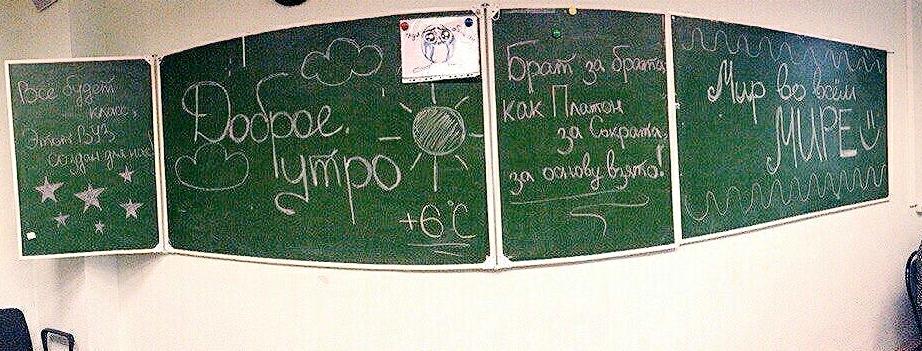 Все будет
класс,
Этот ВУЗ
создан для нас!
Доброе
утро
+6°C
Брат за брата,
как Платон
за Сократа,
за основу взято!
Мир во всём
МИРЕ